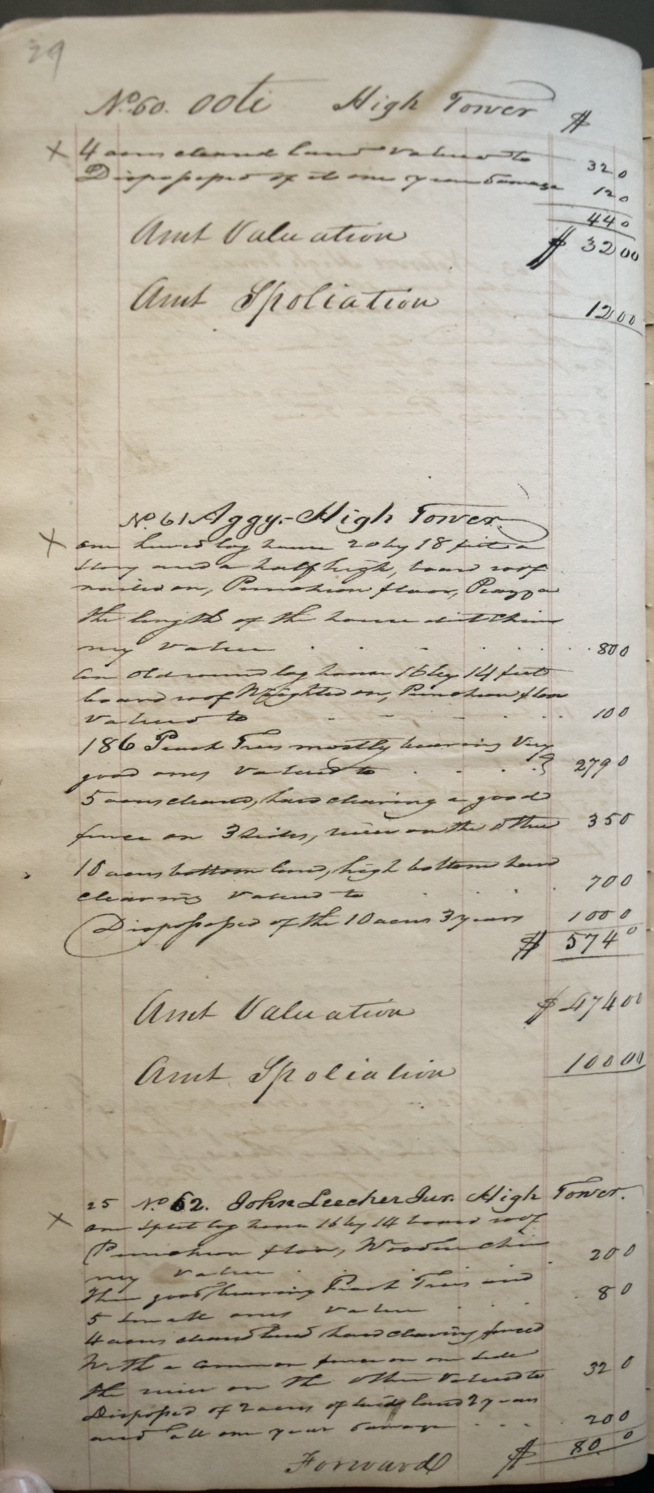 29
No. 60. Ooti High Tower $
X 4 acres cleared land valued to 320
Dispossessed of it one year damage 120
440
Amt Valuation $ 3200
Amt Spoliation 1200
No. 61 Aggy.- High Tower
X one hewed log house 20 by 18 feet a
story and a half high, board roof
nailed on, Puncheon floor, Piazza
the length of the house dirt Chim
ny value 800
an old round log house 16 by 14 feet
board roof Weighted on, Puncheon floor
valued to 100
186 Peach Trees mostly bearing Very
good ones valued to 2790
5 acres cleared, hard clearing a good
fence on 3 sides, river on the other 350
10 acres bottom land, high bottom hard
clearing valued to 700
Dispossessed of the 10 acres 3 years 1000
$ 5740
Amt Valuation $ 47400
Amt Spoliation 10000
25 No. 62. John Leecher Jur. High Tower.
X one split log house 16 by 14 board roof
Puncheon floor, Wooden Chim
ny value 200
Three good bearing Peach Trees and
5 small ones value 80
4 acres cleared land hard clearing fenced
With a common fence on one side
the river on the other valued to 320
Dispossessed of 2 acres of said land 2 years
and all one year damage 200
Forward $ 800